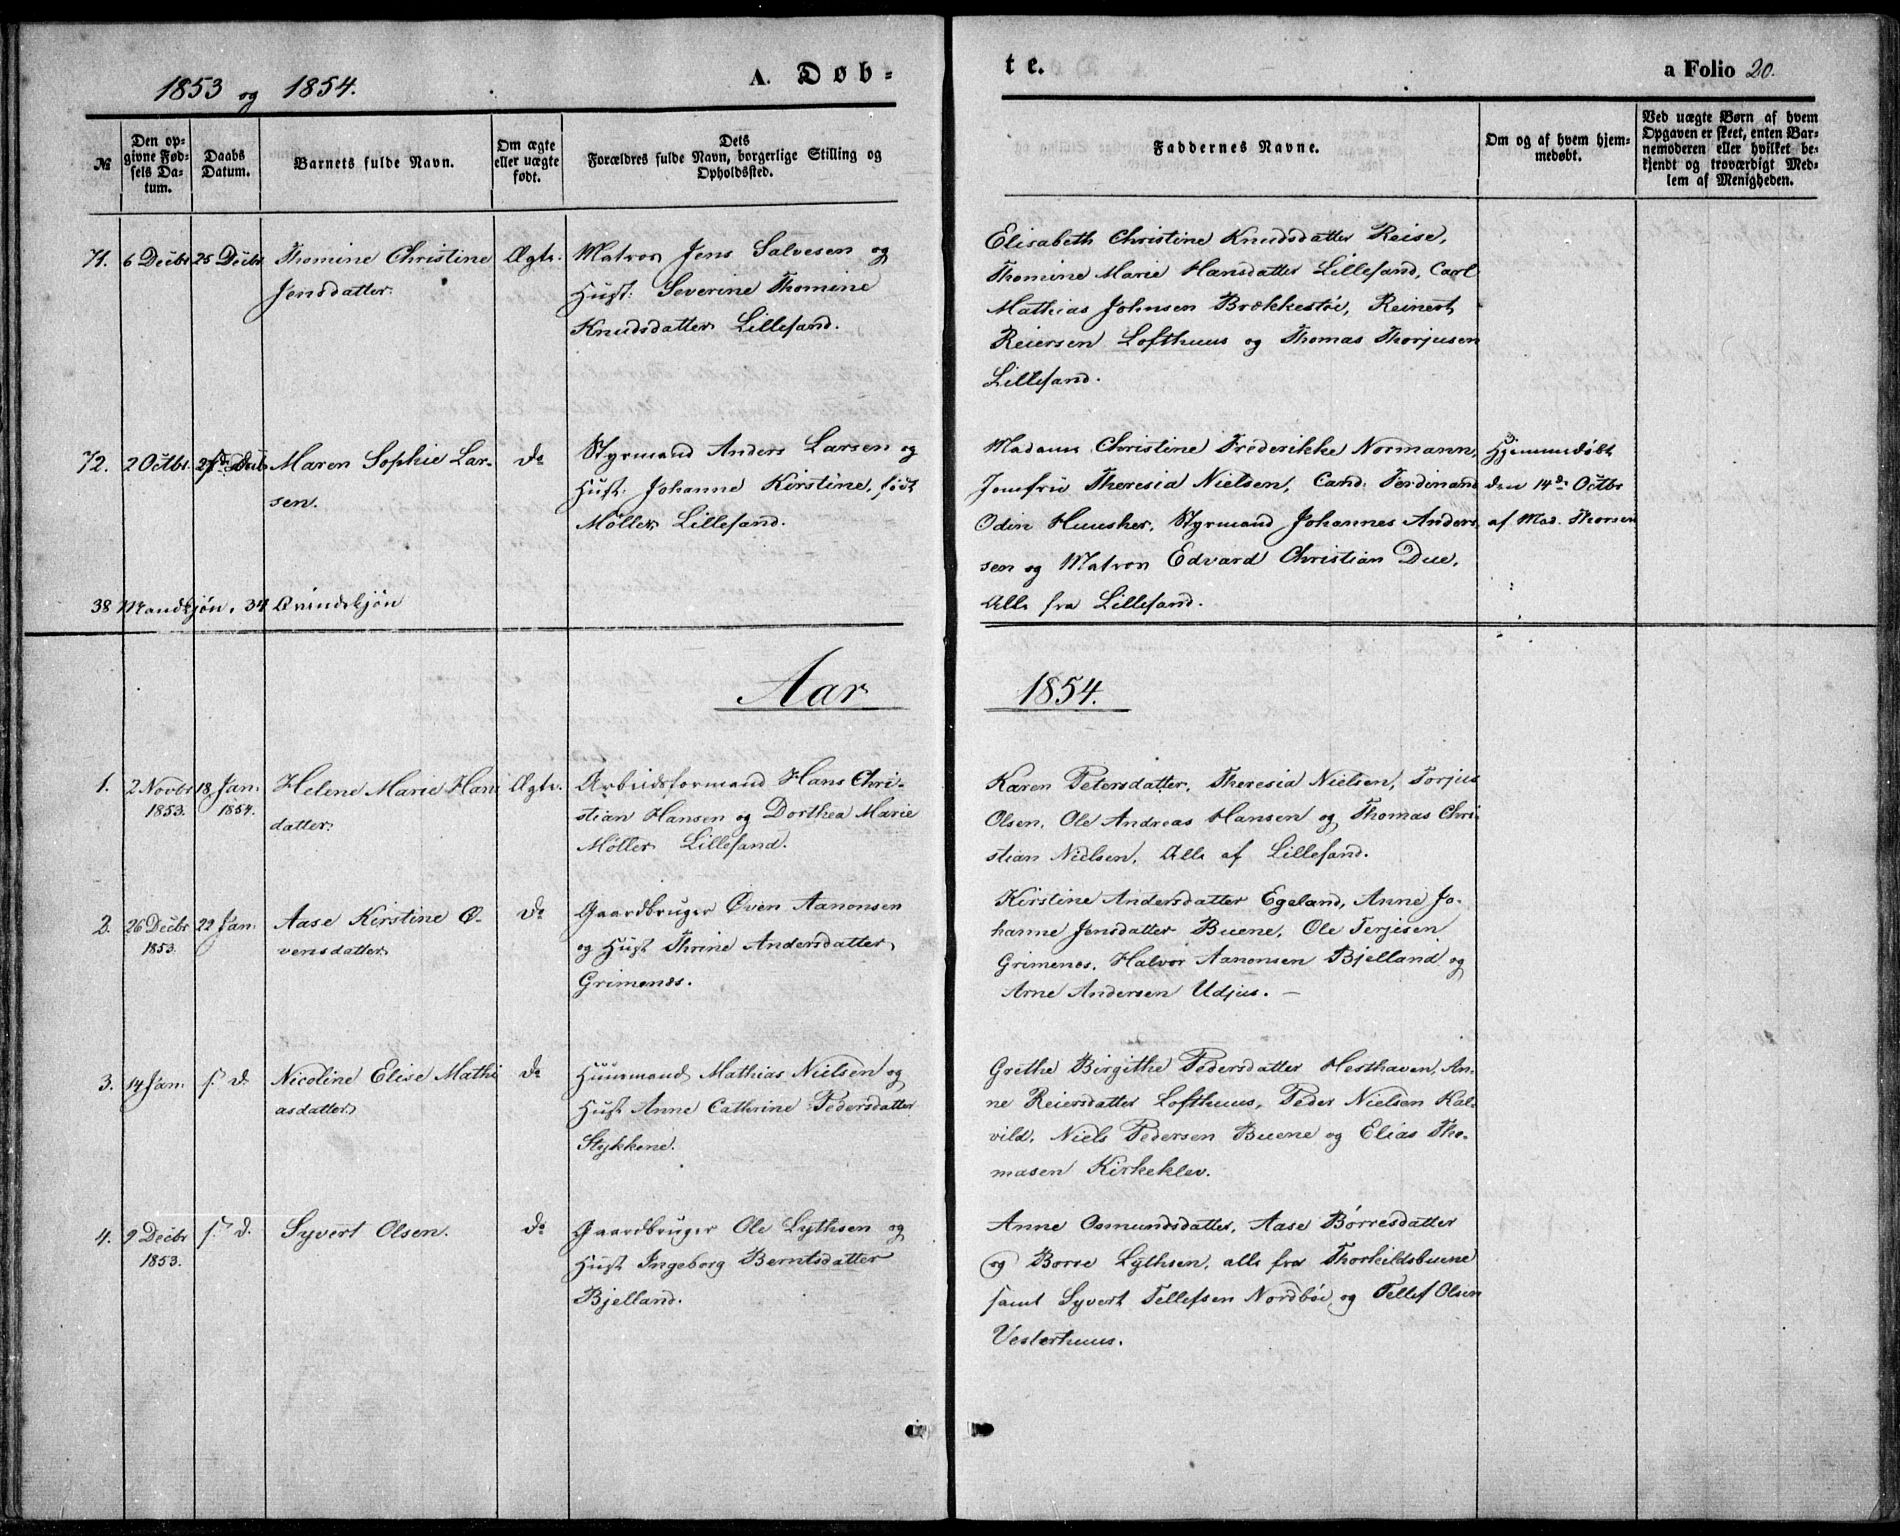 1853 og 1854.
A. Døb-
te.
a Folio 20.
№
Den opgivne Fødsels Datum.
Daabs Datum.
Barnets fulde Navn.
Om ægte eller uægte født.
Dets Forældres fulde Navn, borgerlige Stilling og Opholdssted.
Faddernes Navne.
Om og af hvem hjemmedøbt.
Ved uægte Børn af hvem Opgaven er skeet, enten Barnemoderen eller hvilket bekjendt og troværdigt Medlem af Menigheden.
71. 6 Decbr 25 Decbr Thomine Christine Ægte. Matros Jens Salvesen og
Jensdatter.
Hust: Severine Thomine
Knudsdatter Lillesand.
Elisabeth Christine Knudsdatter Reise,
Thomine Marie Hansdatter Lillesand, Carl
Mathias Johnsen Brækkestøe, Reinert
Reiersen Lofthuus og Thomas Thorjusen
Lillesand.
72. 2 Octbr Maren Sophie Lar- do Styrmand Anders Larsen og
sen.
Hust: Johanne Kirstine, født
Møller Lillesand.
Madame Christine Frederikke Normann,
Jomfru Theresia Nielsen, Cand. Ferdinand
Odin Huusher, Styrmand Johannes Anders
sen og Matros Edvard Christian Due,
Alle fra Lillesand.
Hjemmedøbt
den 14de Octbr
af Mad. Thorsen
38 Mandkjøn, 34 Qvindekjøn
Aar 1854.
1. 2 Novbr 18 Jan. Helene Marie Hans Ægte. Arbeidsformand Hans Chri-
1853. 1854. datter.
stian Hansen og Dorthea Marie
Møller Lillesand.
Karen Petersdatter, Theresia Nielsen, Torjus
Olsen, Ole Andreas Hansen og Thomas Chri-
stian Nielsen, Alle af Lillesand.
2. 26 Decbr 22 Jan. Aase Kirstine Ø- do Gaardbruger Øven Aanonsen
1853. vensdatter
og Hust Thrine Andersdatter
Grimenes.
Kirstine Andersdatter Egeland, Anne Jo-
hanne Jensdatter Buene, Ole Terjesen
Grimenes, Halvor Aanonsen Bjelland og
Arne Andersen Udjus. –
3. 14 Jan. s. d. Nicoline Elise Mathi do Huusmand Mathias Nielsen og
asdatter
Hust Anne Cathrine Pedersdatter
Stykkene.
Grethe Birgithe Pedersdatter Hesthaven, An-
ne Reiersdatter Lofthuus, Peder Nielsen Kal-
vild, Niels Pedersen Buene og Elias Tho-
masen Kirkeklev.
4. 9 Decbr s. d. Syvert Olsen. do Gaardbruger Ole Lythsen og
1853.
Hust Ingeborg Berntsdatter
Bjelland.
Anne Osmundsdatter, Aase Børresdatter
og Borre Lythsen, alle fra Thorkildsbuene
samt Syvert Tellefsen Nordbøe og Tellef Olsen
Vesterhuus.